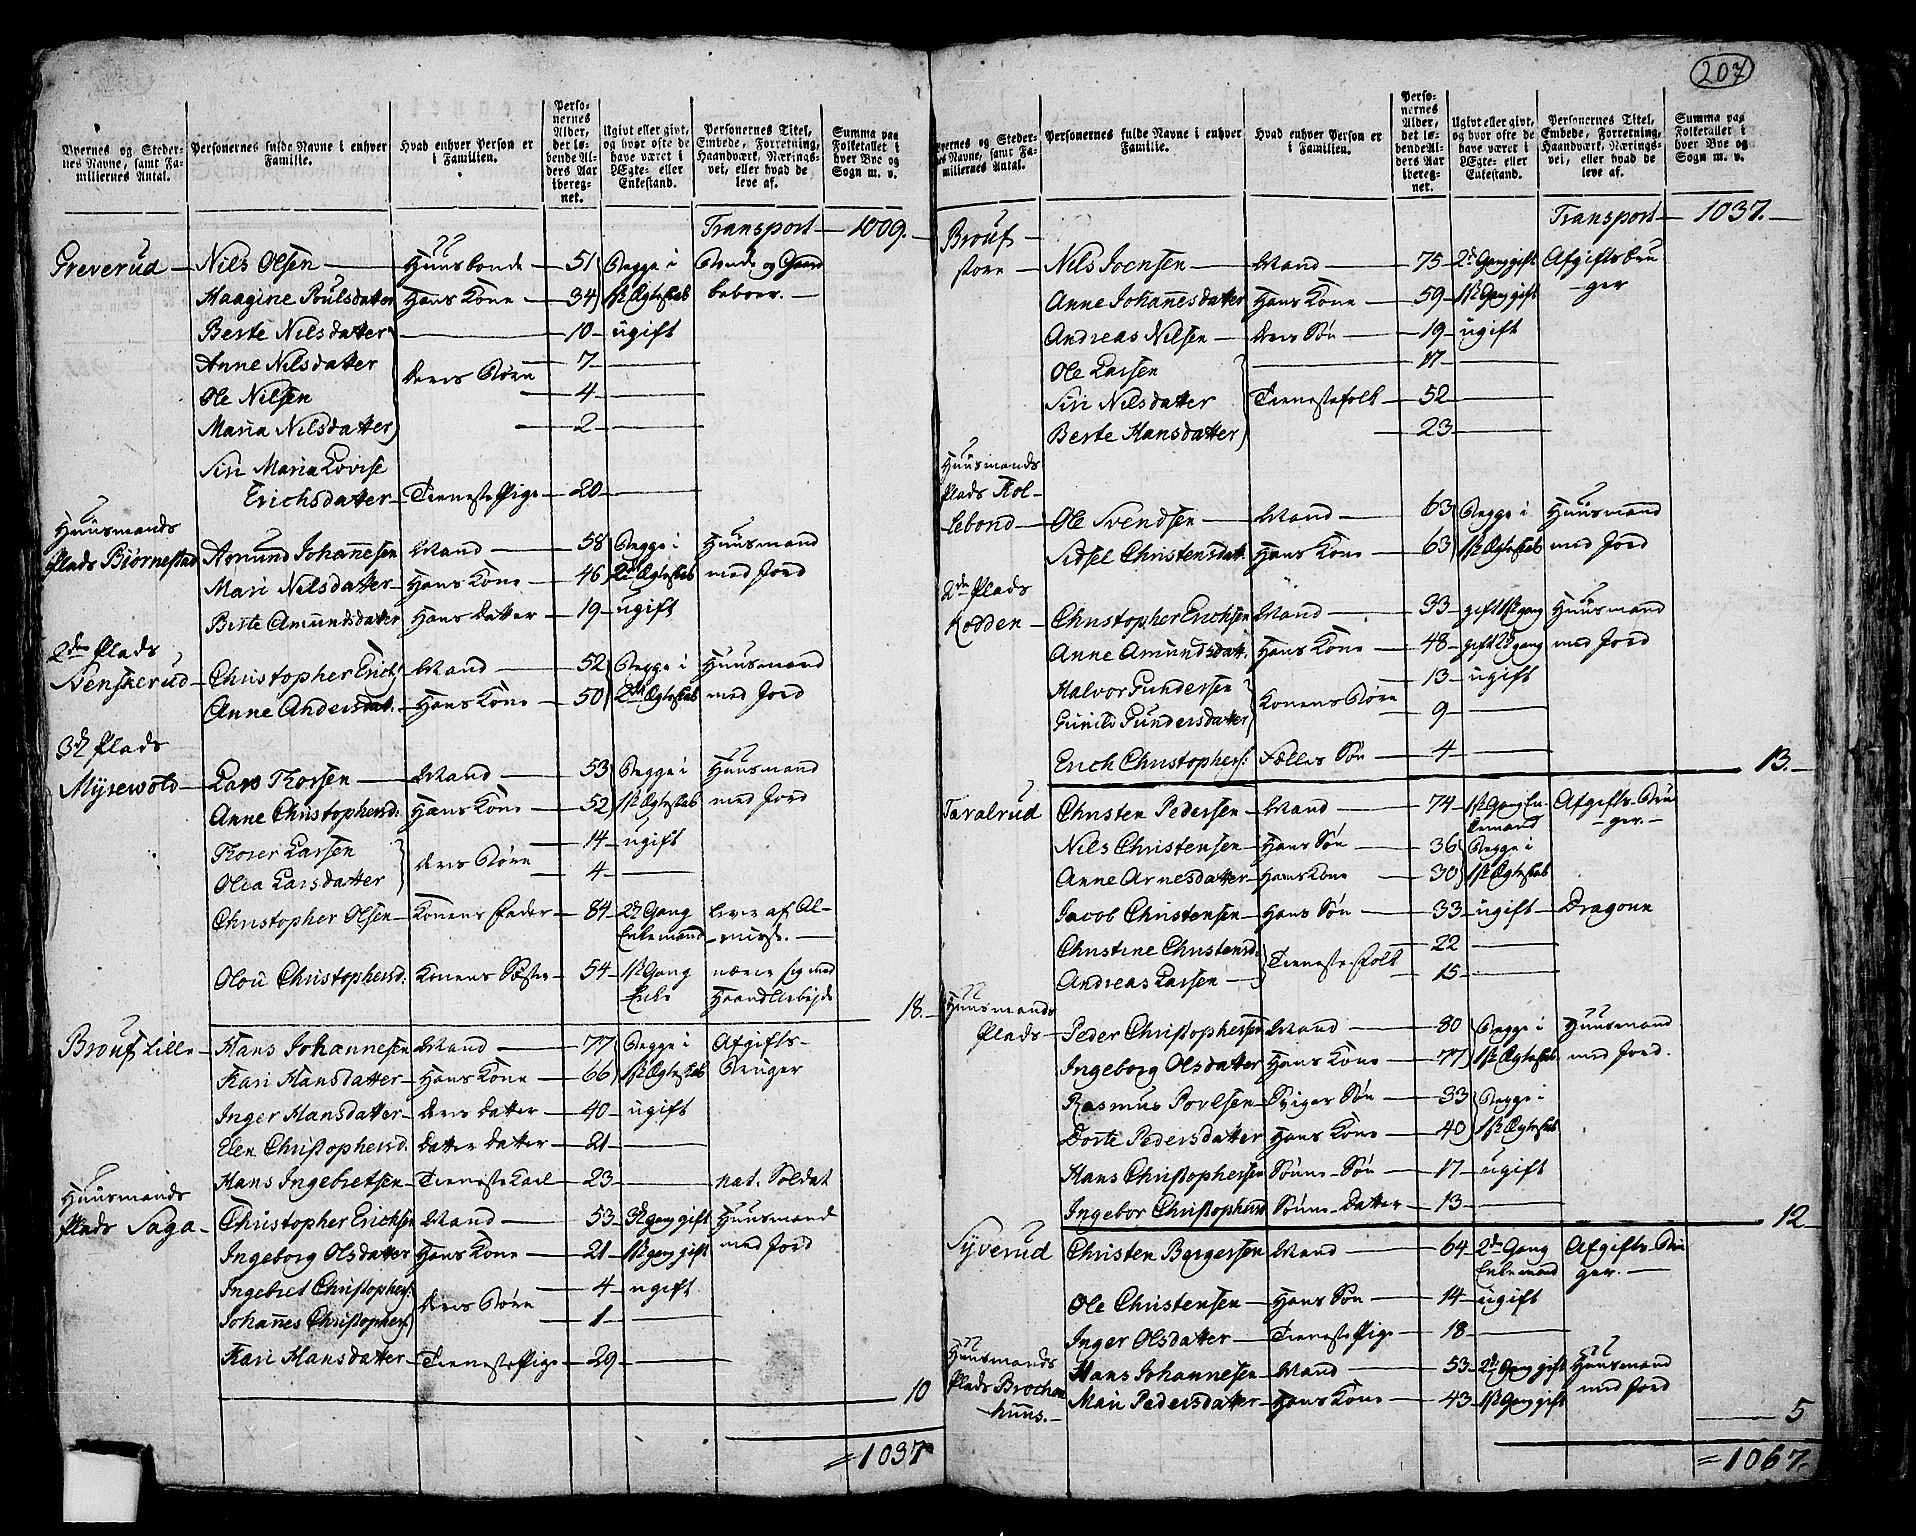 207
Byernes og Steder-
nes Navne, samt Fa-
miliernes Antal.
Personernes fulde Navne i enhver
Familie.
Hvad enhver Person er
i Familien.
Perso-
nernes
Alder,
det lø-
bende Al-
ders Aar
ibereg-
net.
Ugivt eller givt,
og hvor ofte de
have været i
Ægte- eller
Enkestand.
Personernes Titel,
Embede, Forretning,
Haandværk, Nærings-
vei, eller hvad de
leve af.
Summa paa
Folketallet i
hver Bye og
Sogn m. v.
Transport — 1009.
Greverud — Nils Olsen — Huusbonde — 51 Begge i Bonde og Gaard
Maagine Poulsdatter Hans Kone — 34 1ste Ægteskab beboer. —
Berte Nilsdatter — 10 — ugift
Anne Nilsdatter — 7 —
deres Børn
Ole Nilsen — 4 —
Maria Nilsdatter — 2 —
Siri Maria Lovise
Erichsdatter — TienestePige — 20 —
Huusmands
Plads Biørnestad Amund Johannesen Mand — 58 Begge i Huusmand
Mari Nilsdatter — Hans Kone — 46 2det Ægteskab med Jord
Berte Amundsdatter Hans Datter — 19 — ugift
2den Plads
Stenserud — Christopher Erichs. Mand — 52 Begge i Huusmand
Anne Andersdat. — Hans Kone — 50 2det Ægteskab med Jord
3de Plads
Myrewold — Lars Thorsen — Mand — 53 Begge i Huusmand
Anne Christophersd. Hans Kone — 52 1ste Ægteskab med Jord
Thorer Larsen — 14 — ugift
deres Børn
Olea Larsdatter — 4 —
Christopher Olsen — Konens Fader — 84 — 2de Gang lever af Al-
Enkemand — misse. —
Olou Christophersd. Konens Søster — 54 — 1ste Gang nærer sig med
Enke Haandarbejde
18.
Brouf Lille — Hans Johannesen Mand — 77 Begge i Afgifts-
Kari Hansdatter — Hans Kone — 66 1ste Ægteskab Bruger
Inger Hansdatter — deres datter — 40 — ugift
Elen Christophersd. datter datter — 21 —
Hans Ingebretsen — Tieneste Karl — 23 — nat. Soldat
Huusmands
Plads Saga — Christopher Erichsen Mand — 53 — 3de gang gift Huusmand
Ingeborg Olsdatter Hans Kone — 21 — 1ste gang gift med Jord
Ingebret Christophers. — 4 — ugift
deres Børn
Johannes Christophers. — 1 —
Kari Hansdatter — TienestePige — 29 —
10
= 1037
Byernes og Steder-
nes Navne, samt Fa-
miliernes Antal.
Personernes fulde Navne i enhver
Familie.
Hvad enhver Person er
i Familien.
Perso-
nernes
Alder,
det lø-
bende Al-
ders Aar
ibereg-
net.
Ugivt eller givt,
og hvor ofte de
have været i
Ægte- eller
Enkestand.
Personernes Titel,
Embede, Forretning,
Haandværk, Nærings-
vei, eller hvad de
leve af.
Summa paa
Folketallet i
hver Bye og
Sogn m. v.
Transport — 1037.
Brouf —
store — Nils Joensen — Mand — 75 — 2de Gang gift Afgiftsbru
Anne Johannesdatter Hans Kone — 59 — 1ste Gang gift — ger
Andreas Nilsen — deres Søn — 19 — ugift
Ole Larsen — 17 —
Siri Nilsdatter Tienestefolk — 52 —
Berte Hansdatter — 23 —
Huusmands
Plads Kol-
lebond — Ole Svendsen — Mand — 63 Begge i Huusmand
Sidsel Christensdatt. Hans Kone — 63 1ste Ægteskab med Jord
2den Plads
Kodden — Christopher Erichsen Mand — 33 — gift 1ste gang Huusmand
Anne Amundsdatt. Hans Kone — 48 — gift 2de gang med Jord
Halvor Gundersen — 13 — ugift
Konens Børn
Gunild Gundersdatter — 9 —
Erich Christophers: Fælles Søn — 4 —
13.
Taralrud Christen Pedersen — Mand — 74 — 1ste Gang En- Afgifts-Bru
kemand — ger. —
Nils Christensen — Hans Søn — 36 Begge i
Anne Arnesdatter — Hans Kone — 30 1ste Ægteskab
Jacob Christensen — Hans Søn — 33 — ugift — Dragoun
Christine Christensd. — 22 —
Tienestefolk
Andreas Larsen — 15 —
Huusmands
Plads — Peder Christophersen Mand — 80 Begge i Huusmand
Ingeborg Olsdatter Hans Kone — 77 1ste Ægteskab med Jord.
Rasmus Povelsen — Sviger Søn — 33 Begge i
Dorte Pedersdatter Hans Kone — 40 1ste Ægteskab
Hans Christophersen Sønne-Søn — 17 — ugift
Ingebor Christophersd Sønne-Datter — 13 —
12
Syverud Christen Bergersen — Mand — 64 — 2den Gang Afgifts-Bru
Enkemand ger. —
Ole Christensen — Hans Søn — 14 — ugift
Inger Olsdatter — TienestePige — 18 —
Huusmands
Plads Brochen Hans Johannesen — Mand — 53 — 2de Gang gift Huusmand
huus. — Mari Pedersdatter — Hans Kone — 43 — 1ste Gang gift med Jord
5
= 1067.